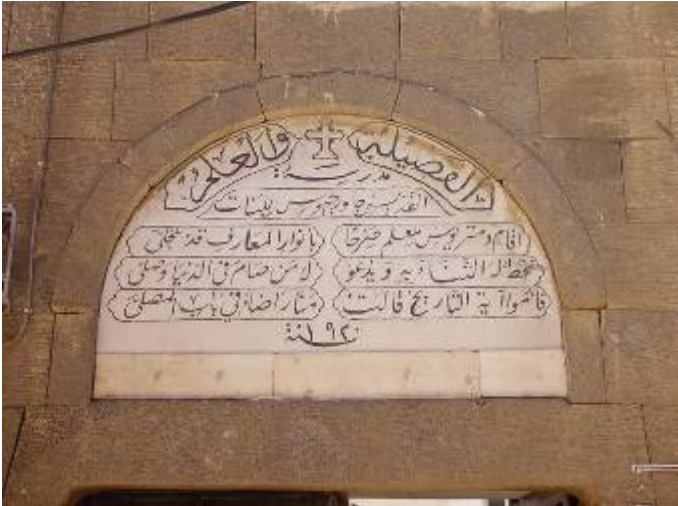 الفضيلة والعلم
مدرسة
القديس جاورجيوس للبنات
اقام ديمتريوس معلم صرحا بانوار المعارف قد تجلى
له الثنا ويدعو لا من صام في الدنيا وصلى
آية التاريخ قالت منار اضاء في باب المصلى
سنة ١٩٢٠